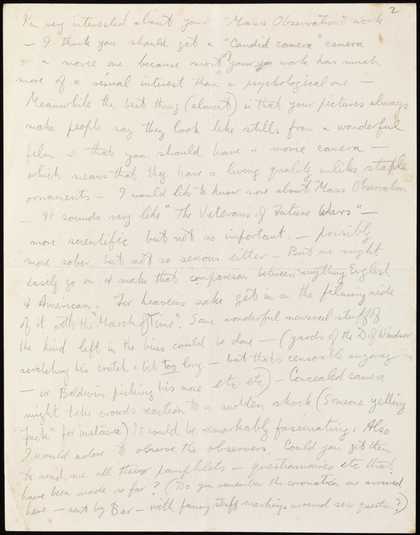 2
I'm very interested about your "Mass Observation" work
— I think you should get a "Candid camera" camera
or a movie one because most your work has much
more of a visual interest than a psychological one —
Meanwhile the best thing (almost) is that your pictures always
make people say they look like stills from a wonderful
film & that you should have a movie camera —
which means that they have a living quality unlike staple
ornaments — I would like to know more about Mass Observation
— It sounds very like "The Veterans of Future Wars" —
more scientific but not so important — possibly
more sober but not so serious either — But one might
easily go on & make that comparison between anything English
& American. For heavens sake get in on the filming side
of it with the "March of Time". Some wonderful newsreel stuff of
the kind left in the bins could be done — (guards of the D. of Windsor
scratching his crotch a bit too long — but that's censorable anyway
— or Baldwin picking his nose etc etc) — Concealed camera
might take crowds reaction to a sudden shock (Someone yelling
"fuck" for instance) It could be remarkably fascinating. Also
I would adore to observe the observers. Could you get them
to send me all their pamphlets — questionnaires etc that
have been made so far? (Do you remember the coronation one arrived
here — sent by — with funny stuff markings around sex queries?)